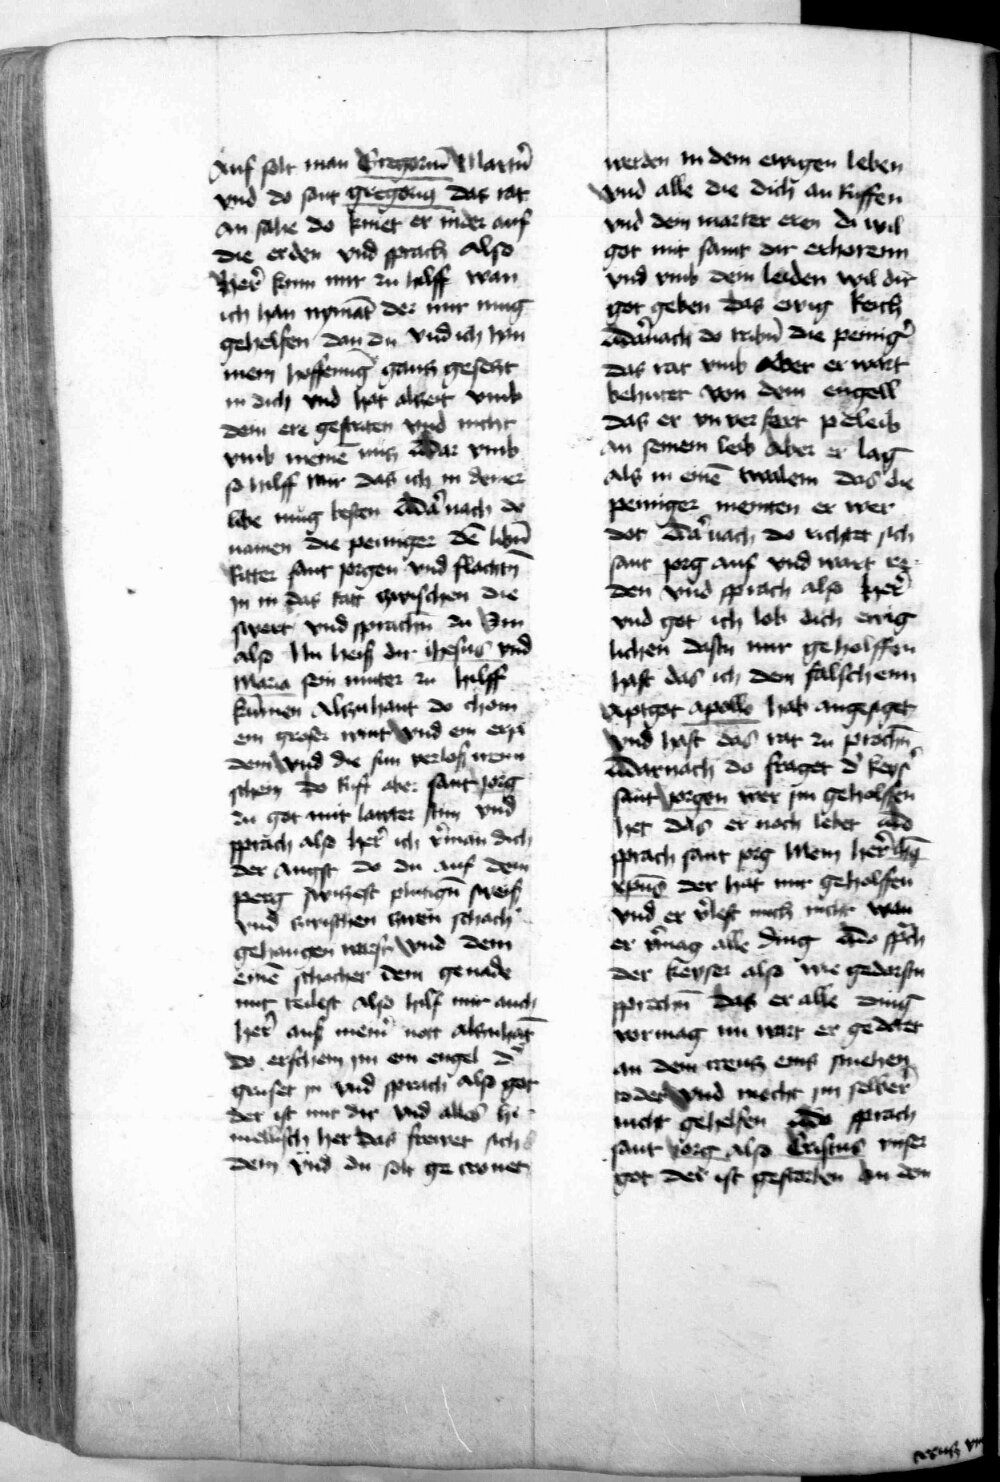 Auf solt man Gregorium Martrn̄
vnd do sant gregorius das rat
an sahe do kniet er nider auf
die erden vnd sprach Also
Her̄ kum mir zu hilff wan
ich han nymāt der mir mug
gehelfen dan du vnd ich han
mein hoffenūg gantz gesetzt
in dich vnd hat alzeit vmb
dein ere gestriten vnd nicht
vmb meinē nucz Dar vmb
so hilff mir das ich in deiner
libe mug besten Dar nach do
namen die peiniger dē libn̄
Ritter sant jorgen vnd flachtn̄
in in das ratt zwischen die
swert vnd sprachn̄ du
also Nu heiß dir ihesus vnd
Maria sein muter zu hilff
kūmen Alzuhant do chom
ein groser wint vnd ein erpi
dem vnd die sun verlos irenn
schein do Rift aber sant jorg
zu got mit lawter stim vnd
sprach also Her̄ ich v̄man dich
der Angst do du auf dem
perg switzest plutign̄ sweiß
vnd zwischen zwein schach
gehangen warst vnd dem
einē schacher dein genade
mit teilest Also hilf mir auch
her̄ auß mein̄ nott alzuhāt
Do erschein im ein engel d̄
gruset in vnd sprach also got
der ist mit dir vnd alles hi
melisch her das frewet sich
dein vnd du solt gecronet
werden in dem ewigen leben
vnd alle die dich an Ruffen
vnd dein marter eren di wil
got mit samt dir erhorenn
vnd vmb dein leiden wil dir
got geben das ewig Reich
Dar nach do tribn̄ die peiniḡ
das rat vmb Aber er wart
behutet von dem engell
das er vn ver sert peleib
an seinem leib Aber er lag
als in einē twalem das die
peiniger meinten er wer
dot Dar nach do richtet sich
sant jorg auf vnd wart re
den vnd sprach also her̄
vnd got ich lob dich ewig
lichen dastu mir geholffen
hast das ich dem falschenn
Aptgot apollo hab angesiget
vnd hast das rat zu prochn̄
Darnach do fraget d̄ keys̄
sant jorgen wer im geholffen
het das er noch lebet do
sprach sant jorg Mein her̄ ihs̄
xpūs der hat mir geholffen
vnd er v̄lest mich nicht wan
er v̄mag alle ding Do sp̄ch
der keyser also wie gedarstu
sprechn̄ das er alle ding
vormag nu wart er gedotet
an dem creutz eins smehen
todes vnd mocht im selber
nicht gehelfen Do sprach
sant jorg also Cristus vnser
got der ist gestorben an dem
creutz vm